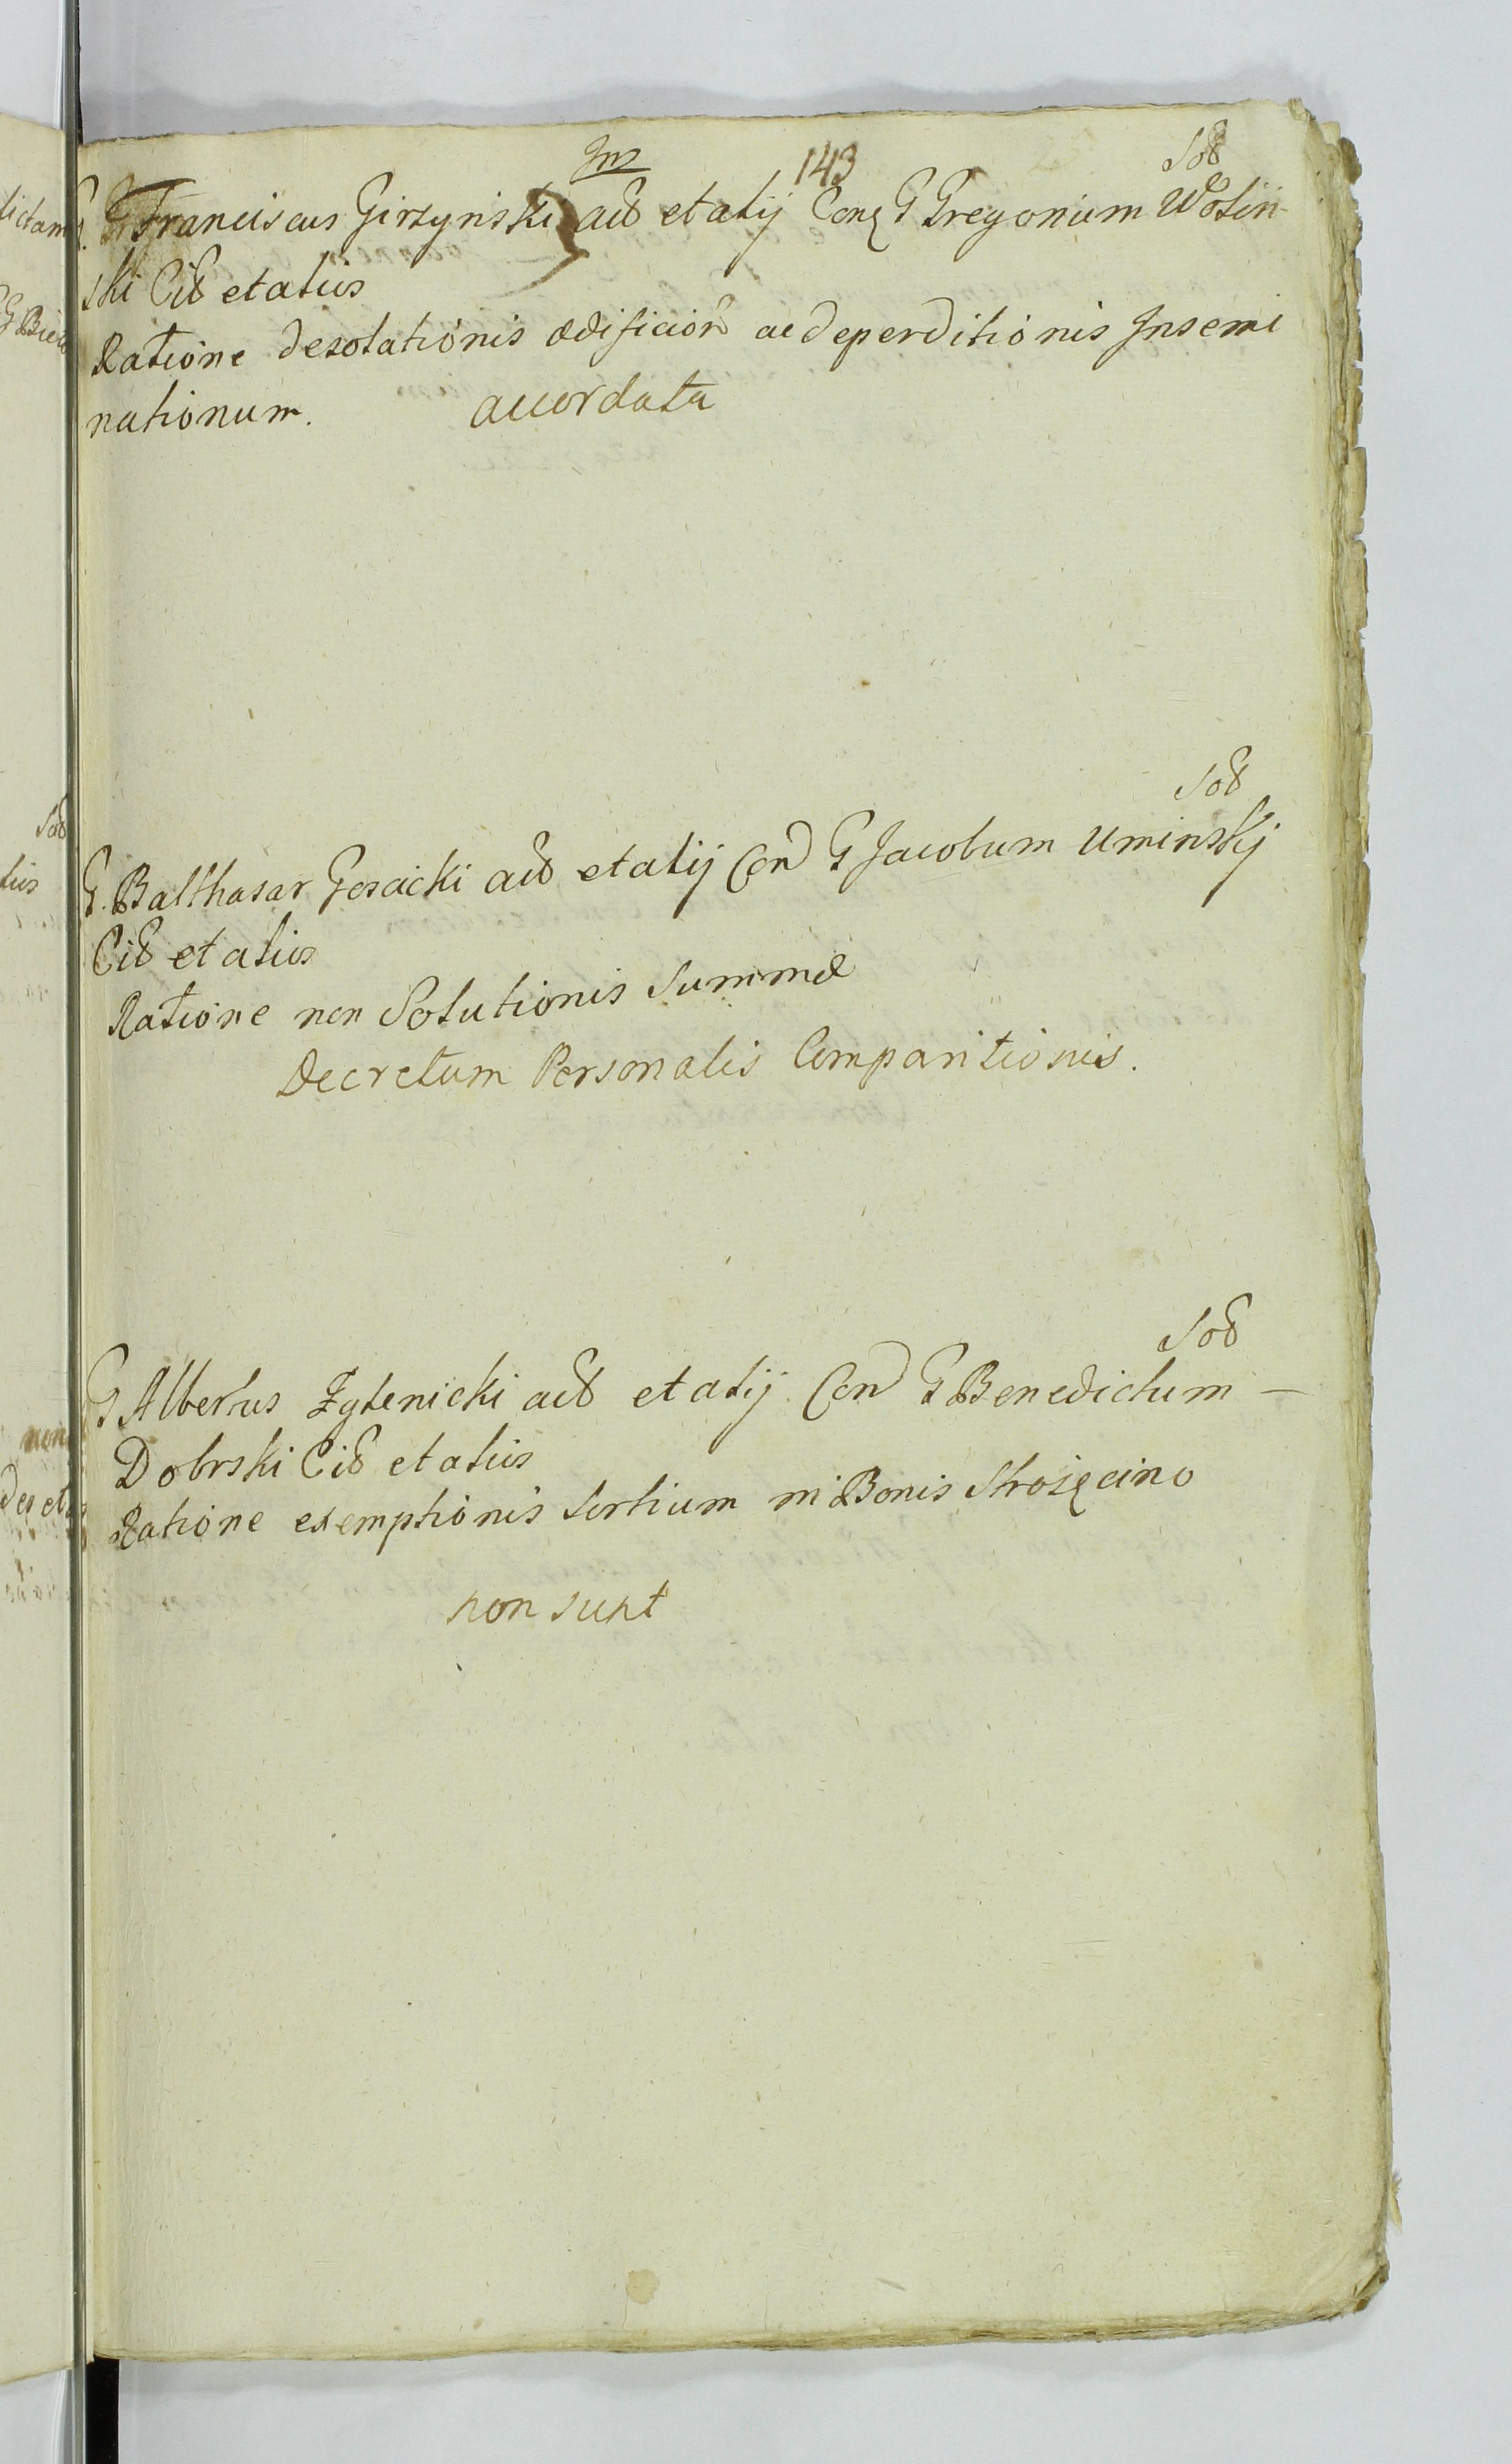 Ins 143 Sob
G. G Franciscus Girzynski acb et alij Conq G Gregorium Wolin-
ski Cib et alios
Ratione desolationis ædificior ac deperditionis Insemi
nationum. accordata
Sob
G. Balthasar Gosiicki acb et alij Con G Jacobum Uminskij
Cib et alios
Ratione non Solutionis Summæ
Decretum Personalis Comparitionis.
Sob
G Albertus Zytenicki acb et alij Con G Benedictum —
Dobrski Cib et alios
Ratione exemptionis Sortium in Bonis Strosięcino
non sunt